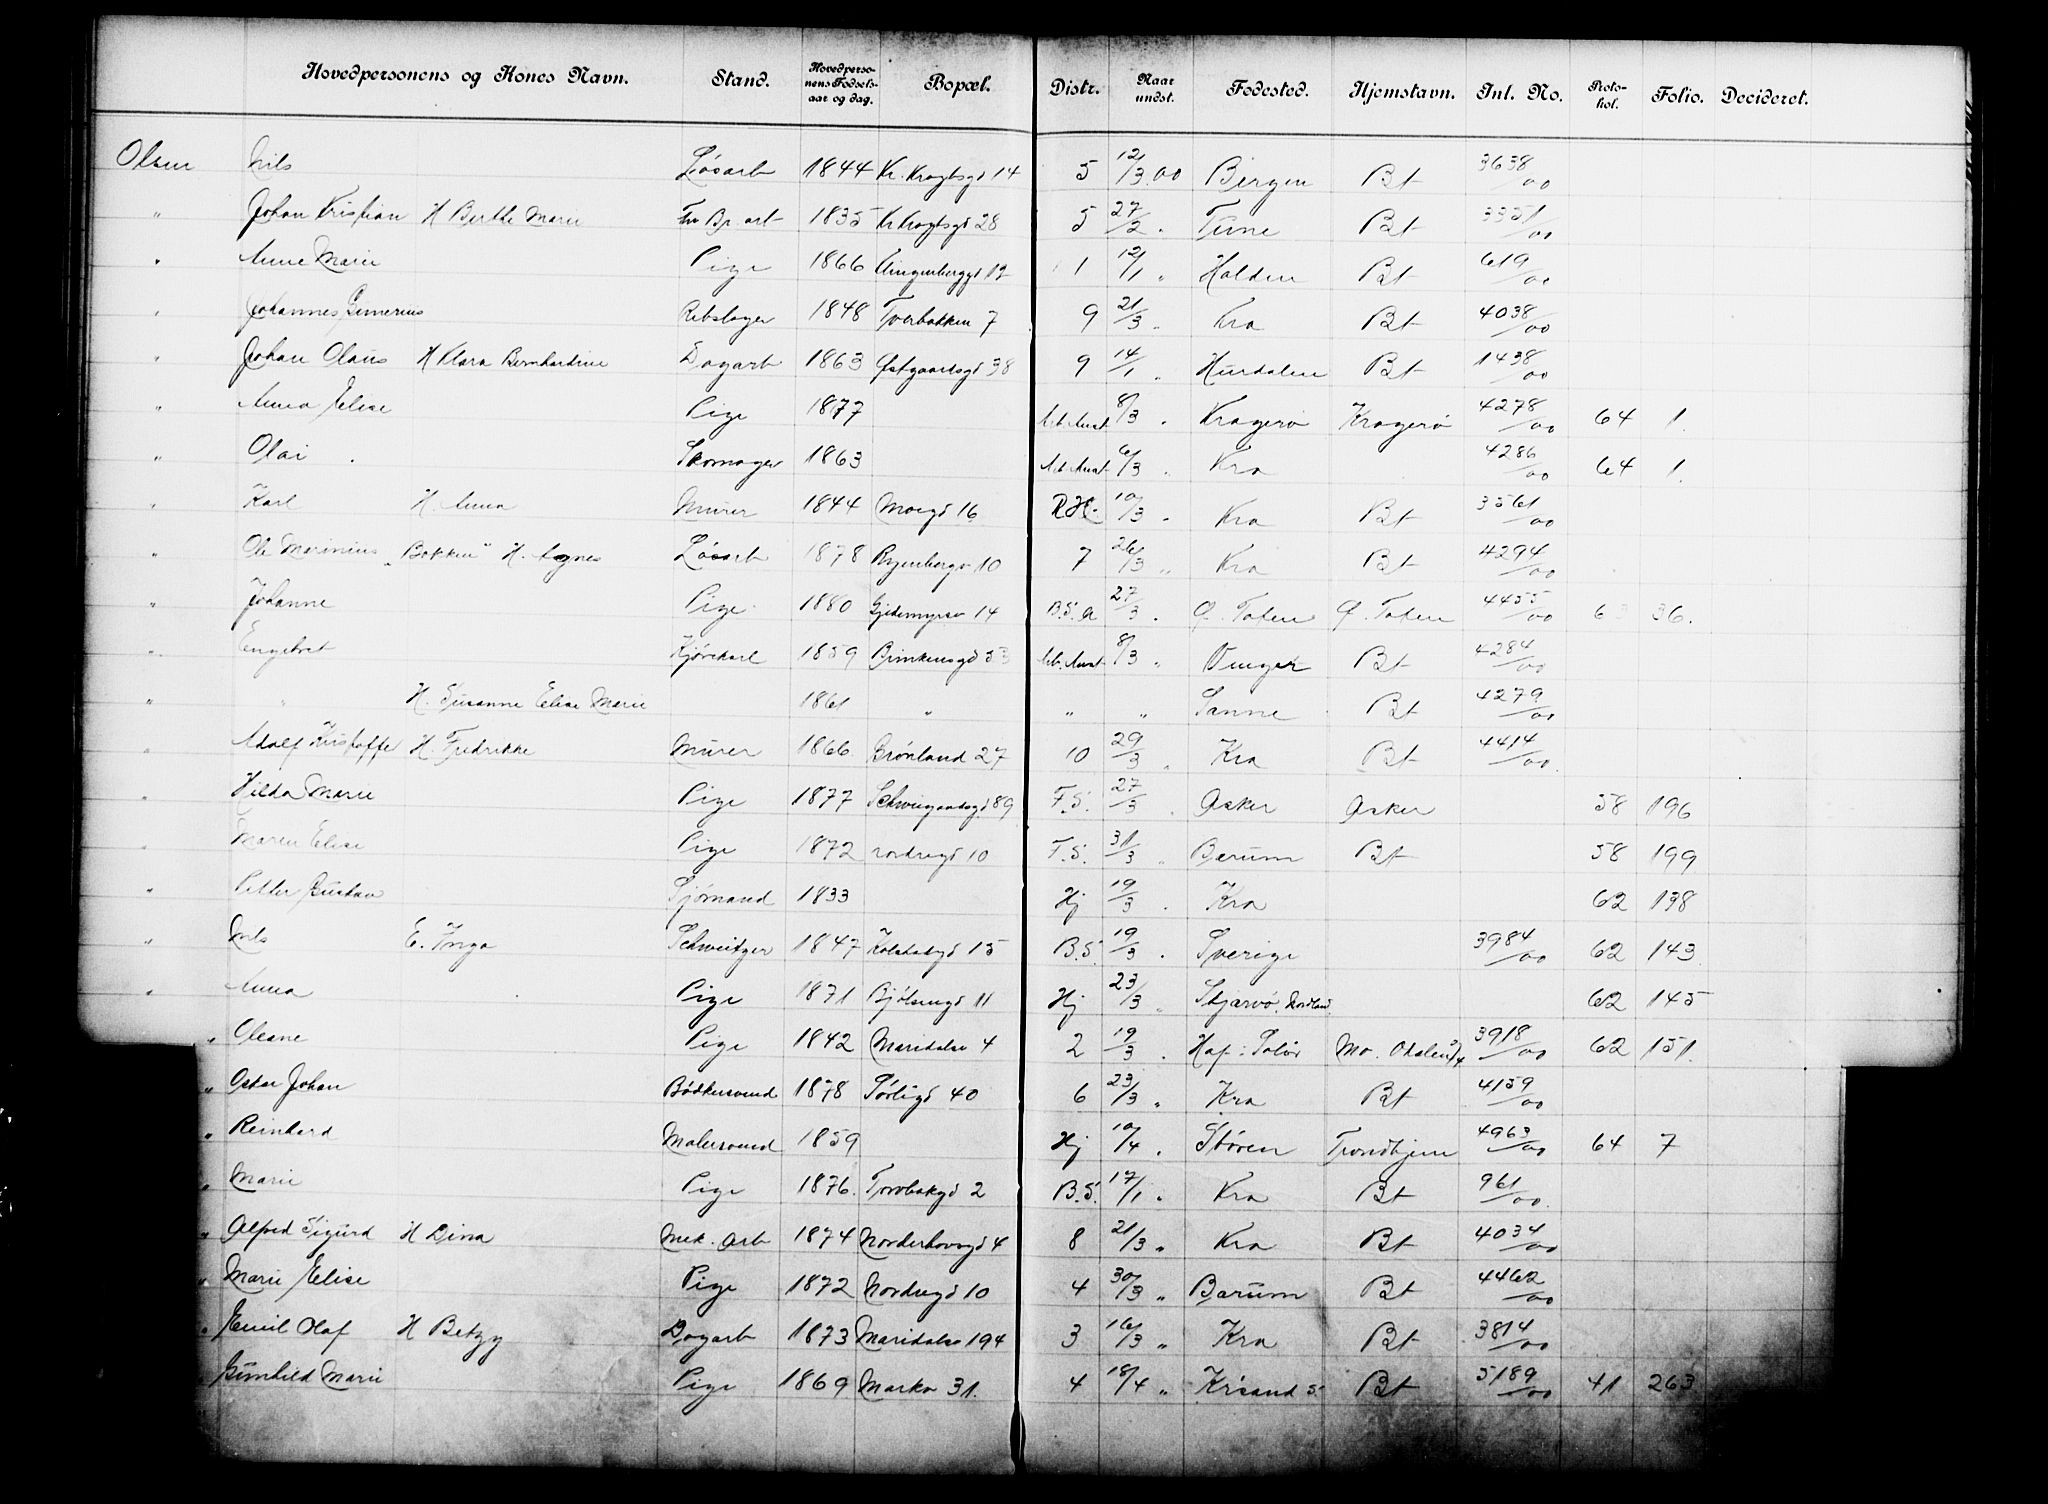 Hovedpersonens og Kones Navn. Stand. Hovedperso- nens Fødsels- aar og dag. Bopæl. Distr. Naar undst. Fødested. Hjemstavn. Inl. No. Proto- kol. Folio. Decideret.
Olsen Nils Løsarb 1844 Kr. Krogtsgd 14 5 12/3.00 Bergen Bt 3638/00
" Johan Kristian H Berthe Marie Fhv Br. arb 1835 Kr Krogtsgd 28 5 27/2 " Tune Bt 3351/00
" Anne Marie Pige 1866 Klingenberggd 12 1 12/1 " Halden Bt 619/00
" Johannes Gunerius Rebslager 1848 Tverbakken 7 9 21/3 " Kra Bt 4038/00
" Johan Olaus H Klara Bernhardine Dagarb 1863 Østgaardsgd 38 9 14/1 " Hurdalen Bt 1438/00
" Anna Elise Pige 1877 Arb. Anst 8/3 " Kragerø Kragerø 4278/00 64 1.
" Olai Skomager 1863 Arb. Anst 6/3 " Kra 4286/00 64 1.
" Karl H. Anna Murer 1844 Moegd 16 RH. 10/3 " Kra Bt 3561/00
" Ole Marinius "Bakken" H. Agnes Løsarb 1878 Ryenbergv 10 7 26/3 " Kra Bt 4294/00
" Johanne Pige 1880 Gjetemyrsv 14 B.S. a 27/3 " Ø. Toten Ø. Toten 4455/00 63 36.
" Engebret Kjørekarl 1859 Brinkensgd 53 Arb. Anst 8/3 " Vinger Bt 4284/00
" " H. Susanne Elise Marie 1861 " " " Sanne Bt 4279/00
" Adolf Kristoffer H. Fredrikke Murer 1866 Grønland 27 10 29/3 " Kra Bt 4414/00
" Hilda Marie Pige 1877 Schweigaardsgd 89 F.S. 27/3 " Asker Asker 58 196
" Maren Elise Pige 1872 Nordregd 10 F.S. 31/3 " Berum Bt 58 199
" Petter Gustav Sjømand 1833 Hj 19/3 " Kra 62 138
" Nils E. Inga Schweitzer 1847 Kolstadgd 15 B.S. 19/3 " Sverige 3984/00 62 143
" Anna Pige 1871 Bjølsengd 11 Hj 23/3 " Skjærvø, Nordland 62 145
" Oleane Pige 1842 Maridalsv 4 2 19/3 " Hof i Solør Mo. Odalen 3918/00 62 151.
" Oskar Johan Bødkersvend 1878 Sørligd 40 6 23/3 " Kra Bt 4159/00
" Reinhard Malersvend 1859 Hj 10/4 " Støren Trondhjem 4963/00 64 7
" Marie Pige 1876 Torvbakgd 2 B.S. 17/1 " Kra Bt 961/00
" Alfred Sigurd H Dina Mek. Arb 1874 Norderhovsgd 4 8 21/3 " Kra Bt 4034/00
" Marie Elise Pige 1872 Nordregd 10 4 30/3 " Bærum Bt 4462/00
" Emil Olaf H Betzy Dagarb 1873 Maridalsv 194 3 16/3 " Kra Bt 3814/00
" Gunhild Marie Pige 1869 Markv 31. 4 18/4 " Kr'sand S. Bt 5189/00 41 263